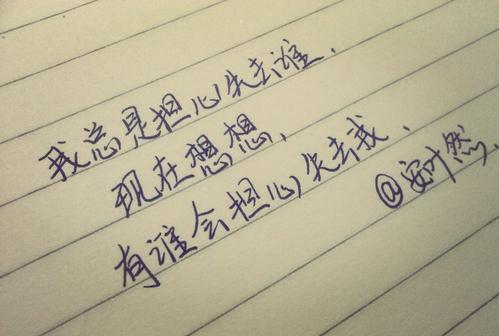 我总是担心失去谁.
现在想想,
有谁会担心失去我.
@安叶然.